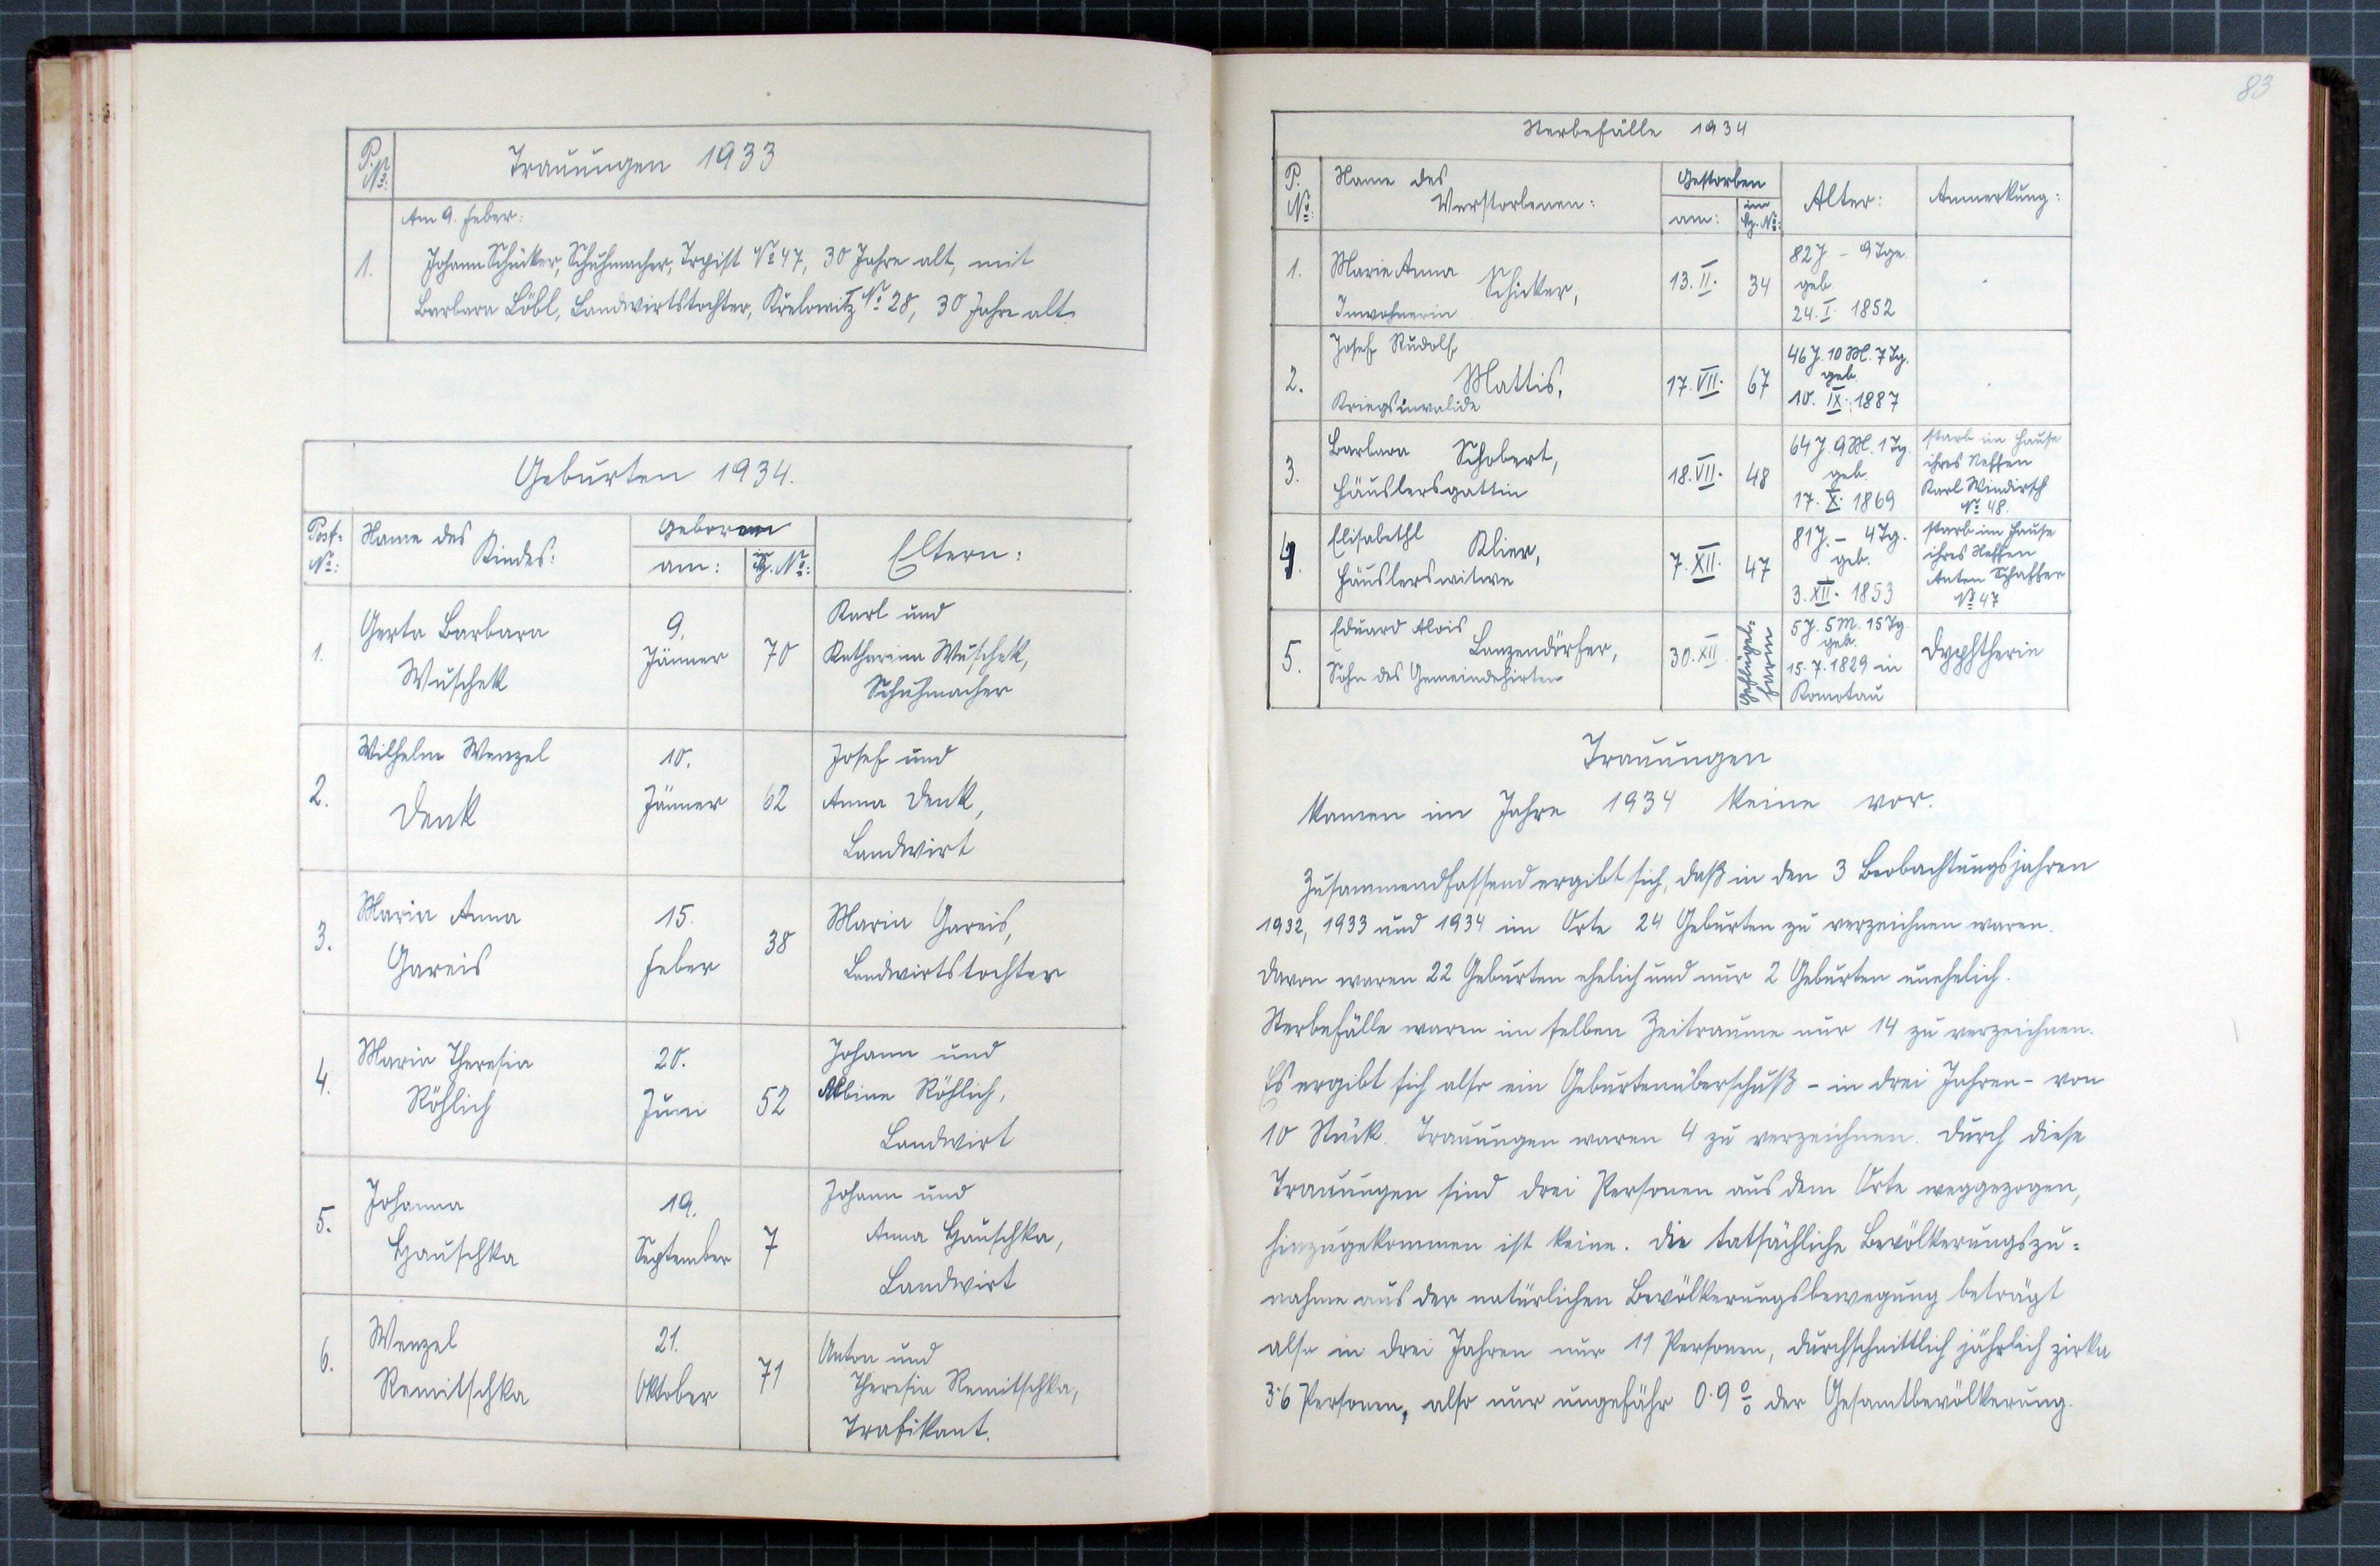 P. No:
Trauungen 1933
1.
Am 9. Feber:
Johann Schicker, Schuhmacher, Trpist No 47, 30 Jahre alt, mit
Barbara Löbl, Landwirtstochter, Křelowitz No 28, 30 Jahre alt.
Geburten 1934.
Post- No:
Name des Kindes:
Geboren
am:
im Hs. No:
Eltern:
1.
Gerta Barbara
Wuschek
9.
Jänner
70
Karl und
Katharina Wuschek,
Schuhmacher
2.
Wilhelm Wenzel
Denk
10.
Jänner
62
Josef und
Anna Denk,
Landwirt
3.
Maria Anna
Gareis
15.
Feber
38
Maria Gareis,
Landwirtstochter
4.
Maria Theresia
Röhlich
20.
Juni
52
Johann und
Albine Röhlich,
Landwirt
5.
Johanna
Hauschka
19.
September
7
Johann und
Anna Hauschka,
Landwirt
6.
Wenzel
Remitschka
21.
Oktober
71
Anton und
Theresia Remitschka,
Trafikant.
83
Sterbefälle 1934
P. No:
Name des
Verstorbenen:
Gestorben
am:
im Hs. No:
Alter:
Anmerkung:
1.
Marie Anna
Schicker,
Inwohnerin
13. II.
34
82 J - 9 Tge.
geb.
24. I. 1852
2.
Josef Rudolf
Mattis,
Kriegsinvalide
17. VII.
67
46 J. 10 M. 7 Tg.
geb.
10. IX. 1887
3.
Barbara Schobert,
Häuslersgattin
18. VII.
48
64 J. 9 M. 1 Tg.
geb.
17. X. 1869
starb im Hause
ihres Neffen
Karl Windirsch
No 48.
4.
Elisabethl
Klier,
Häuslerswitwe
7. XII.
47
81 J. - 4 Tg.
geb.
3. XII. 1853
starb im Hause
ihres Neffen
Anton Schaffer
No 47
5.
Eduard Alois
Lanzendörfer,
Sohn des Gemeindehirten
30. XII.
Geflügel-
farm
5 J. 5 M. 15 Tg.
geb.
15. 7. 1829 in
Komotau
Dyphtherie
Trauungen
kamen im Jahre 1934 keine vor.
Zusammendfassend ergibt sich, daß in den 3 Beobachtungsjahren
1932, 1933 und 1934 im Orte 24 Geburten zu verzeichnen waren.
Davon waren 22 Geburten ehelich und nur 2 Geburten unehelich.
Sterbefälle waren im selben Zeitraume nur 14 zu verzeichnen.
Es ergibt sich also ein Geburtenüberschuß - in drei Jahren - von
10 Stück. Trauungen waren 4 zu verzeichnen. Durch diese
Trauungen sind drei Personen aus dem Orte weggezogen,
hinzugekommen ist keine. Die tatsächliche Bevölkerungszu-
nahme aus der natürlichen Bevölkerungsbewegung beträgt
also in drei Jahren nur 11 Personen, durchschnittlich jährlich zirka
3·6 Personen, also nur ungefähr 0·9 % der Gesamtbevölkerung.